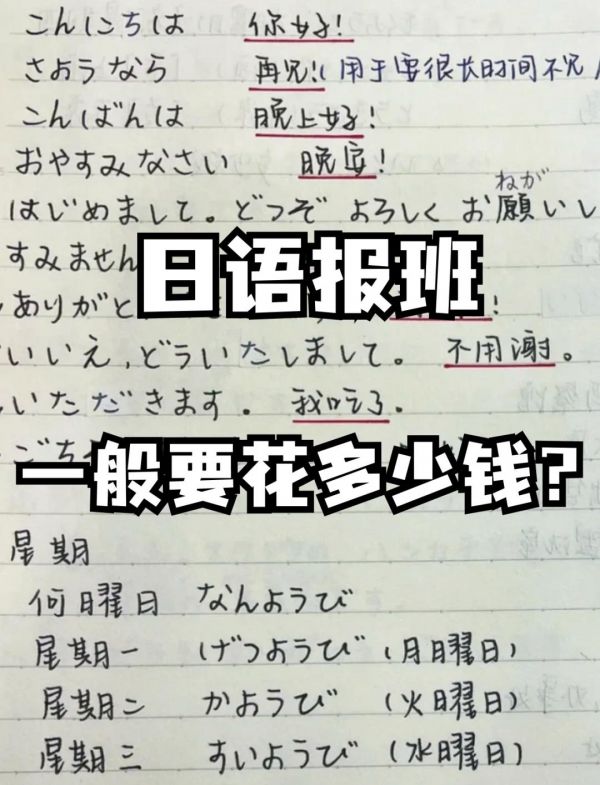 こんにちは 你好!
さようなら 再见!(用于要很长时间不见
こんばんは 晚上好!
おやすみなさい 晚安!
ねが
はじめまして。どうぞ よろしく お願いし
すみません
日语报班
ありがと !
いいえ,どういたしまして。 不用谢。
いただきます。 我吃了。
ごち
一般要花多少钱?
星期
何日曜日 なんようび
星期一 げつようび (月曜日)
星期二 かようび (火曜日)
星期三 すいようび (水曜日)